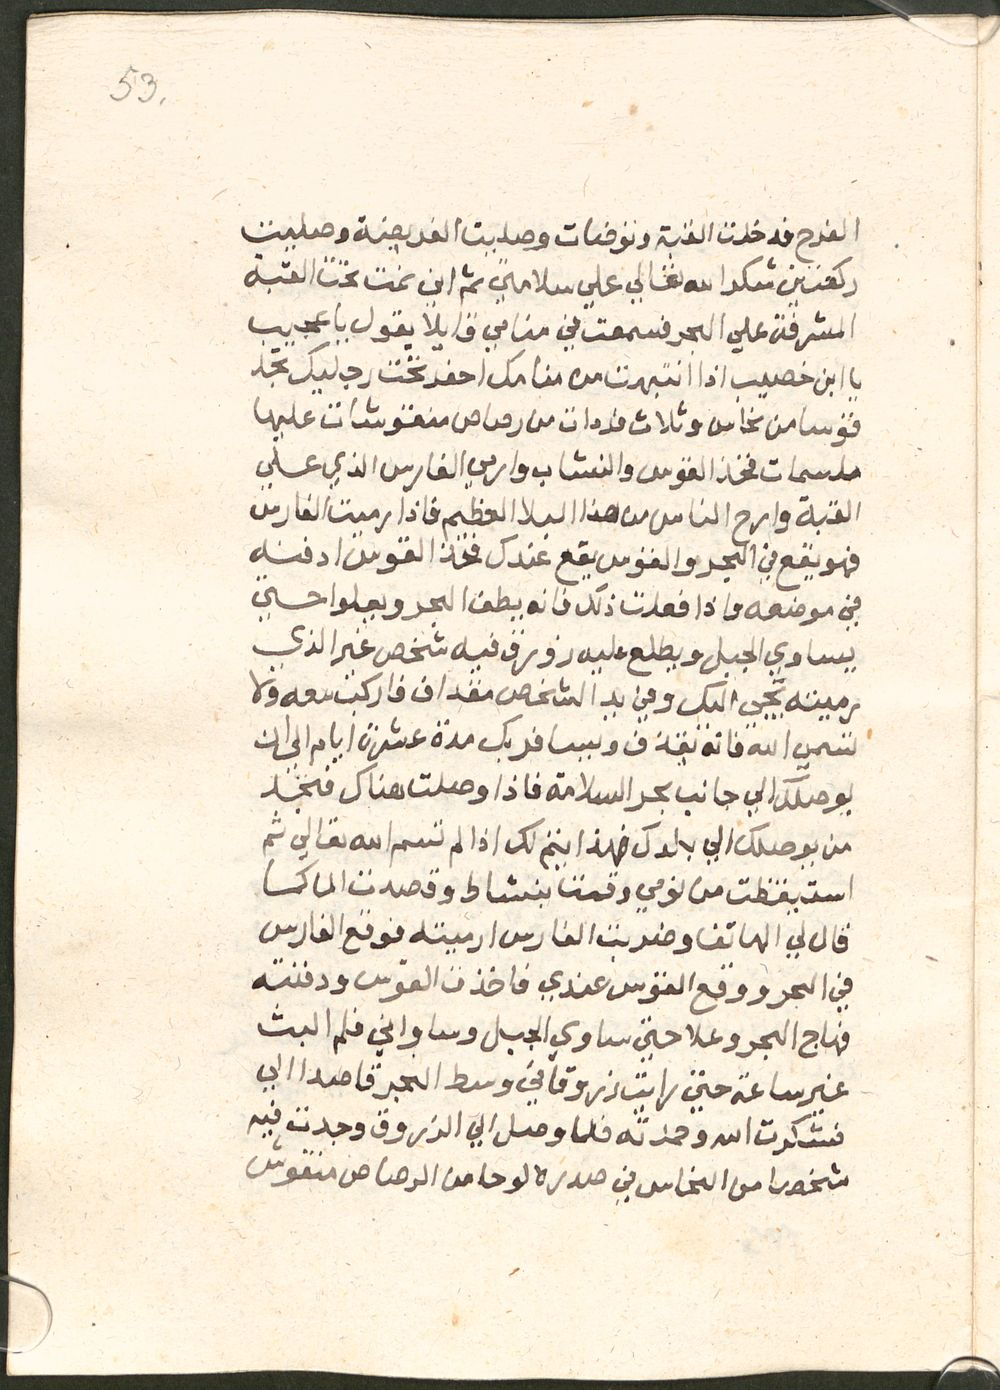 53.
الفرح فدخلت القبة وتوضات وصليت الفريضة وصليت
ركعتين شكرا لله تعالي علي سلامتي ثم اني نمت تحت القبة
المشرفة علي البحر فسمعت في منامي قايلا يقول يا عجيب
يا ابن خصيب اذا انتبهت من منامك احفر تحت رجليك تجد
قوسا من نحاس وثلاث فردات من رصاص منقوشات عليها
طلسمات فخذ القوس والنشاب وارمي الفارس الذي علي
القبة وارح الناس من هذا البلا العظيم فاذا رميت الفارس
فهو يقع في البحر والقوس يقع عندك فخذ القوس ادفنه
في موضعه واذا فعلت ذلك فانه يطف البحر ويعلوا حتي
يساوي الجبل ويطلع عليه زورق فيه شخص غير الذي
رميته يجي اليك وفي يد الشخص مقداف فاركب معه ولا
تسمي الله فانه يقذف ويسافر بك مدة عشرة ايام الي ان
يوصلك الي جانب بحر السلامة فاذا وصلت هناك فتجد
من يوصلك الي بلدك فهذا يتم لك اذا لم تسم الله تعالي ثم
استيقظت من نومي وقمت بنشاط وقصدت الما كما
قال لي الهاتف وضربت الفارس ارميته فوقع الفارس
في البحر ووقع القوس عندي فاخذت القوس ودفنته
فهاج البحر وعلا حتي ساوي الجبل وساواني فلم البث
غير ساعة حتي رايت زورقا في وسط البحر قاصدا الي
فشكرت الله وحمدته فلما وصل الي الزروق وجدت فيه
شخصا من النحاس في صدره لوحا من الرصاص منقوش